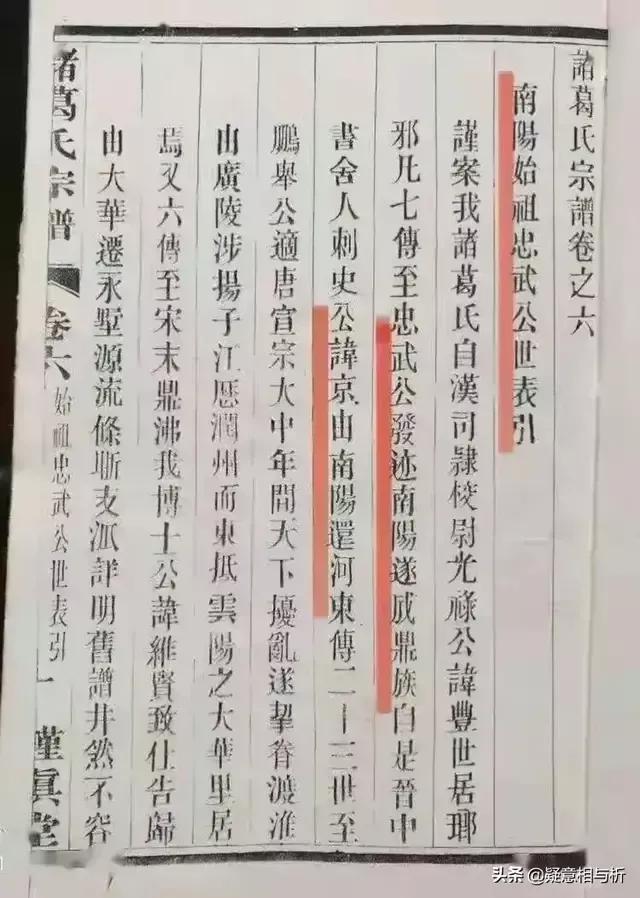 諸葛氏宗譜卷之六
南陽始祖忠武公世表引
謹案我諸葛氏自漢司隸校尉光祿公諱豐世居瑯
邪凡七傳至忠武公發迹南陽遂成鼎族自是晉中
書舍人刺史公諱京由南陽還河東傳二十三世至
鵬舉公適唐宣宗大中年間天下擾亂遂挈眷渡淮
由廣陵涉揚子江歷潤州而東抵雲陽之大華里居
焉又六傳至宋末鼎沸我博士公諱維賢致仕告歸
由大華遷永墅源流條晰支派詳明舊譜井然不容
諸葛氏宗譜 卷六 始祖忠武公世表引 一 瑾眞堂
头条 @疑意相与析